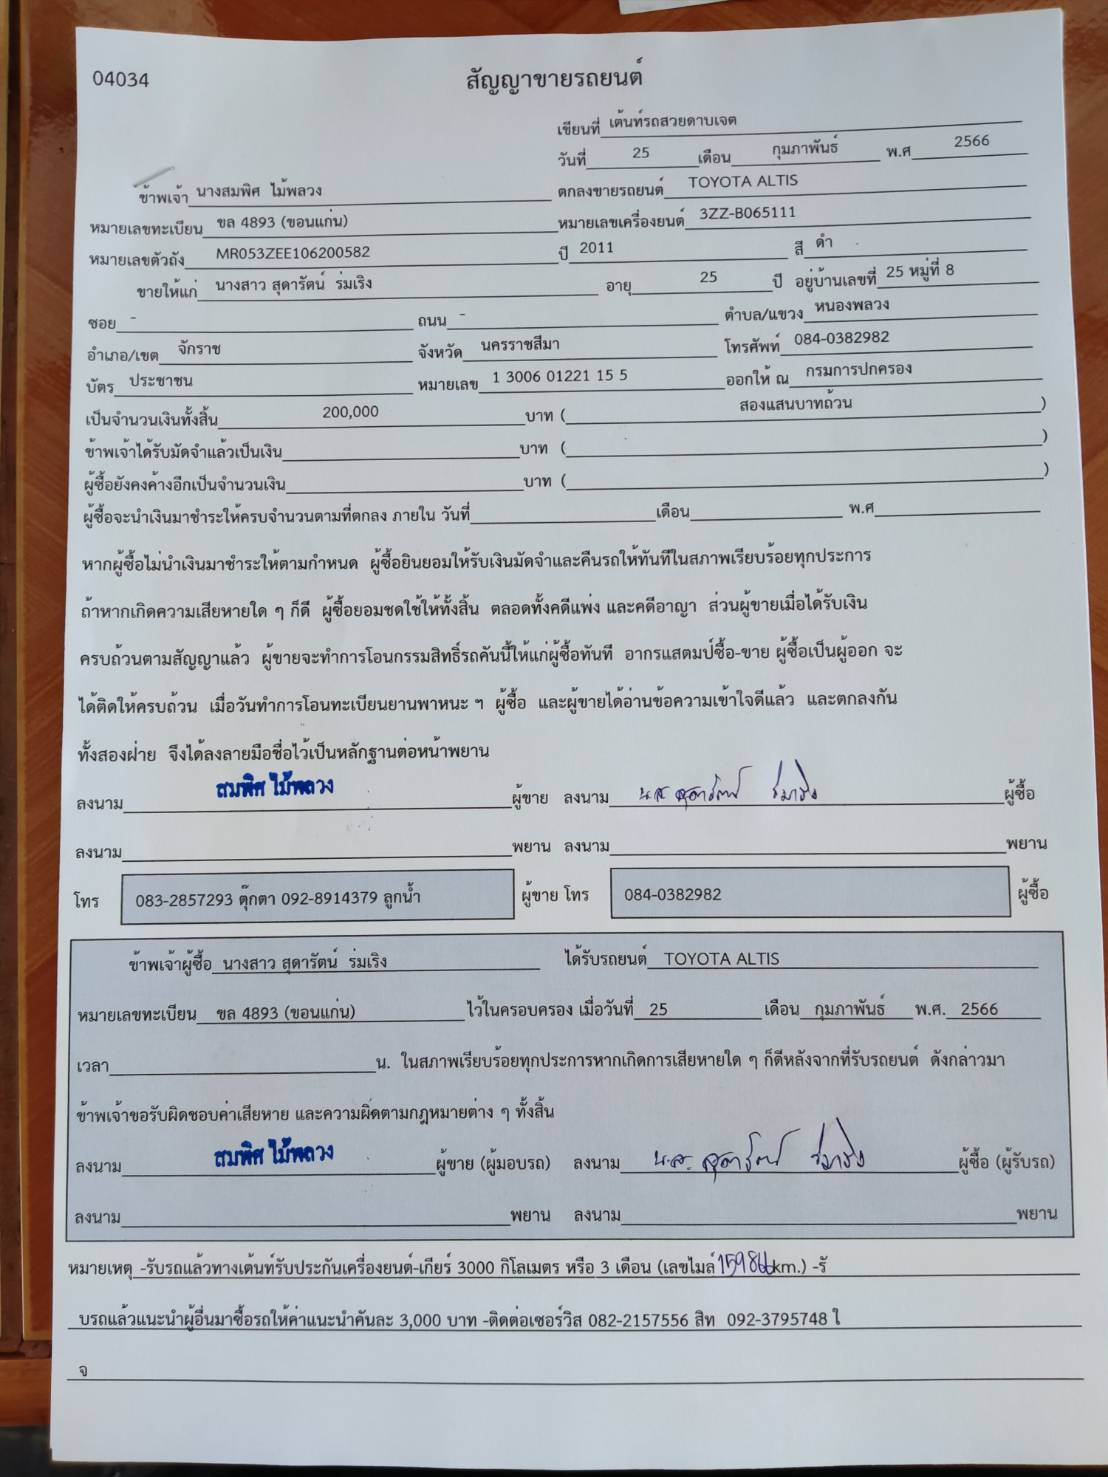 04034
สัญญาขายรถยนต์
เขียนที่ เต้นท์รถสวยดาบเจต
วันที่ 25 เดือน กุมภาพันธ์ พ.ศ 2566
ข้าพเจ้า นางสมพิศ ไม้พลวง ตกลงขายรถยนต์ TOYOTA ALTIS
หมายเลขทะเบียน ขล 4893 (ขอนแก่น) หมายเลขเครื่องยนต์ 3ZZ-B065111
หมายเลขตัวถัง MR053ZEE106200582 ปี 2011 สี ดำ
ขายให้แก่ นางสาว สุดารัตน์ ร่มเริง อายุ 25 ปี อยู่บ้านเลขที่ 25 หมู่ที่ 8
ซอย - ถนน - ตำบล/แขวง หนองพลวง
อำเภอ/เขต จักราช จังหวัด นครราชสีมา โทรศัพท์ 084-0382982
บัตร ประชาชน หมายเลข 1 3006 01221 15 5 ออกให้ ณ กรมการปกครอง
เป็นจำนวนเงินทั้งสิ้น 200,000 บาท ( สองแสนบาทถ้วน )
ข้าพเจ้าได้รับมัดจำแล้วเป็นเงิน บาท ( )
ผู้ซื้อยังคงค้างอีกเป็นจำนวนเงิน บาท ( )
ผู้ซื้อจะนำเงินมาชำระให้ครบจำนวนตามที่ตกลง ภายใน วันที่ เดือน พ.ศ
หากผู้ซื้อไม่นำเงินมาชำระให้ตามกำหนด ผู้ซื้อยินยอมให้รับเงินมัดจำและคืนรถให้ทันทีในสภาพเรียบร้อยทุกประการ
ถ้าหากเกิดความเสียหายใด ๆ ก็ดี ผู้ซื้อยอมชดใช้ให้ทั้งสิ้น ตลอดทั้งคดีแพ่ง และคดีอาญา ส่วนผู้ขายเมื่อได้รับเงิน
ครบถ้วนตามสัญญาแล้ว ผู้ขายจะทำการโอนกรรมสิทธิ์รถคันนี้ให้แก่ผู้ซื้อทันที อากรแสตมป์ซื้อ-ขาย ผู้ซื้อเป็นผู้ออก จะ
ได้ติดให้ครบถ้วน เมื่อวันทำการโอนทะเบียนยานพาหนะ ฯ ผู้ซื้อ และผู้ขายได้อ่านข้อความเข้าใจดีแล้ว และตกลงกัน
ทั้งสองฝ่าย จึงได้ลงลายมือชื่อไว้เป็นหลักฐานต่อหน้าพยาน
ลงนาม สมพิศ ไม้พลวง ผู้ขาย ลงนาม น.ส สุดารัตน์ ร่มเริง ผู้ซื้อ
ลงนาม พยาน ลงนาม พยาน
โทร 083-2857293 ตุ๊กตา 092-8914379 ลูกน้ำ ผู้ขาย โทร 084-0382982 ผู้ซื้อ
ข้าพเจ้าผู้ซื้อ นางสาว สุดารัตน์ ร่มเริง ได้รับรถยนต์ TOYOTA ALTIS
หมายเลขทะเบียน ขล 4893 (ขอนแก่น) ไว้ในครอบครอง เมื่อวันที่ 25 เดือน กุมภาพันธ์ พ.ศ. 2566
เวลา น. ในสภาพเรียบร้อยทุกประการหากเกิดการเสียหายใด ๆ ก็ดีหลังจากที่รับรถยนต์ ดังกล่าวมา
ข้าพเจ้าขอรับผิดชอบค่าเสียหาย และความผิดตามกฎหมายต่าง ๆ ทั้งสิ้น
ลงนาม สมพิศ ไม้พลวง ผู้ขาย (ผู้มอบรถ) ลงนาม น.ส. สุดารัตน์ ร่มเริง ผู้ซื้อ (ผู้รับรถ)
ลงนาม พยาน ลงนาม พยาน
หมายเหตุ -รับรถแล้วทางเต้นท์รับประกันเครื่องยนต์-เกียร์ 3000 กิโลเมตร หรือ 3 เดือน (เลขไมล์ km.) -รั
บรถแล้วแนะนำผู้อื่นมาซื้อรถให้ค่าแนะนำคันละ 3,000 บาท -ติดต่อเซอร์วิส 082-2157556 สิท 092-3795748 ใ
จ